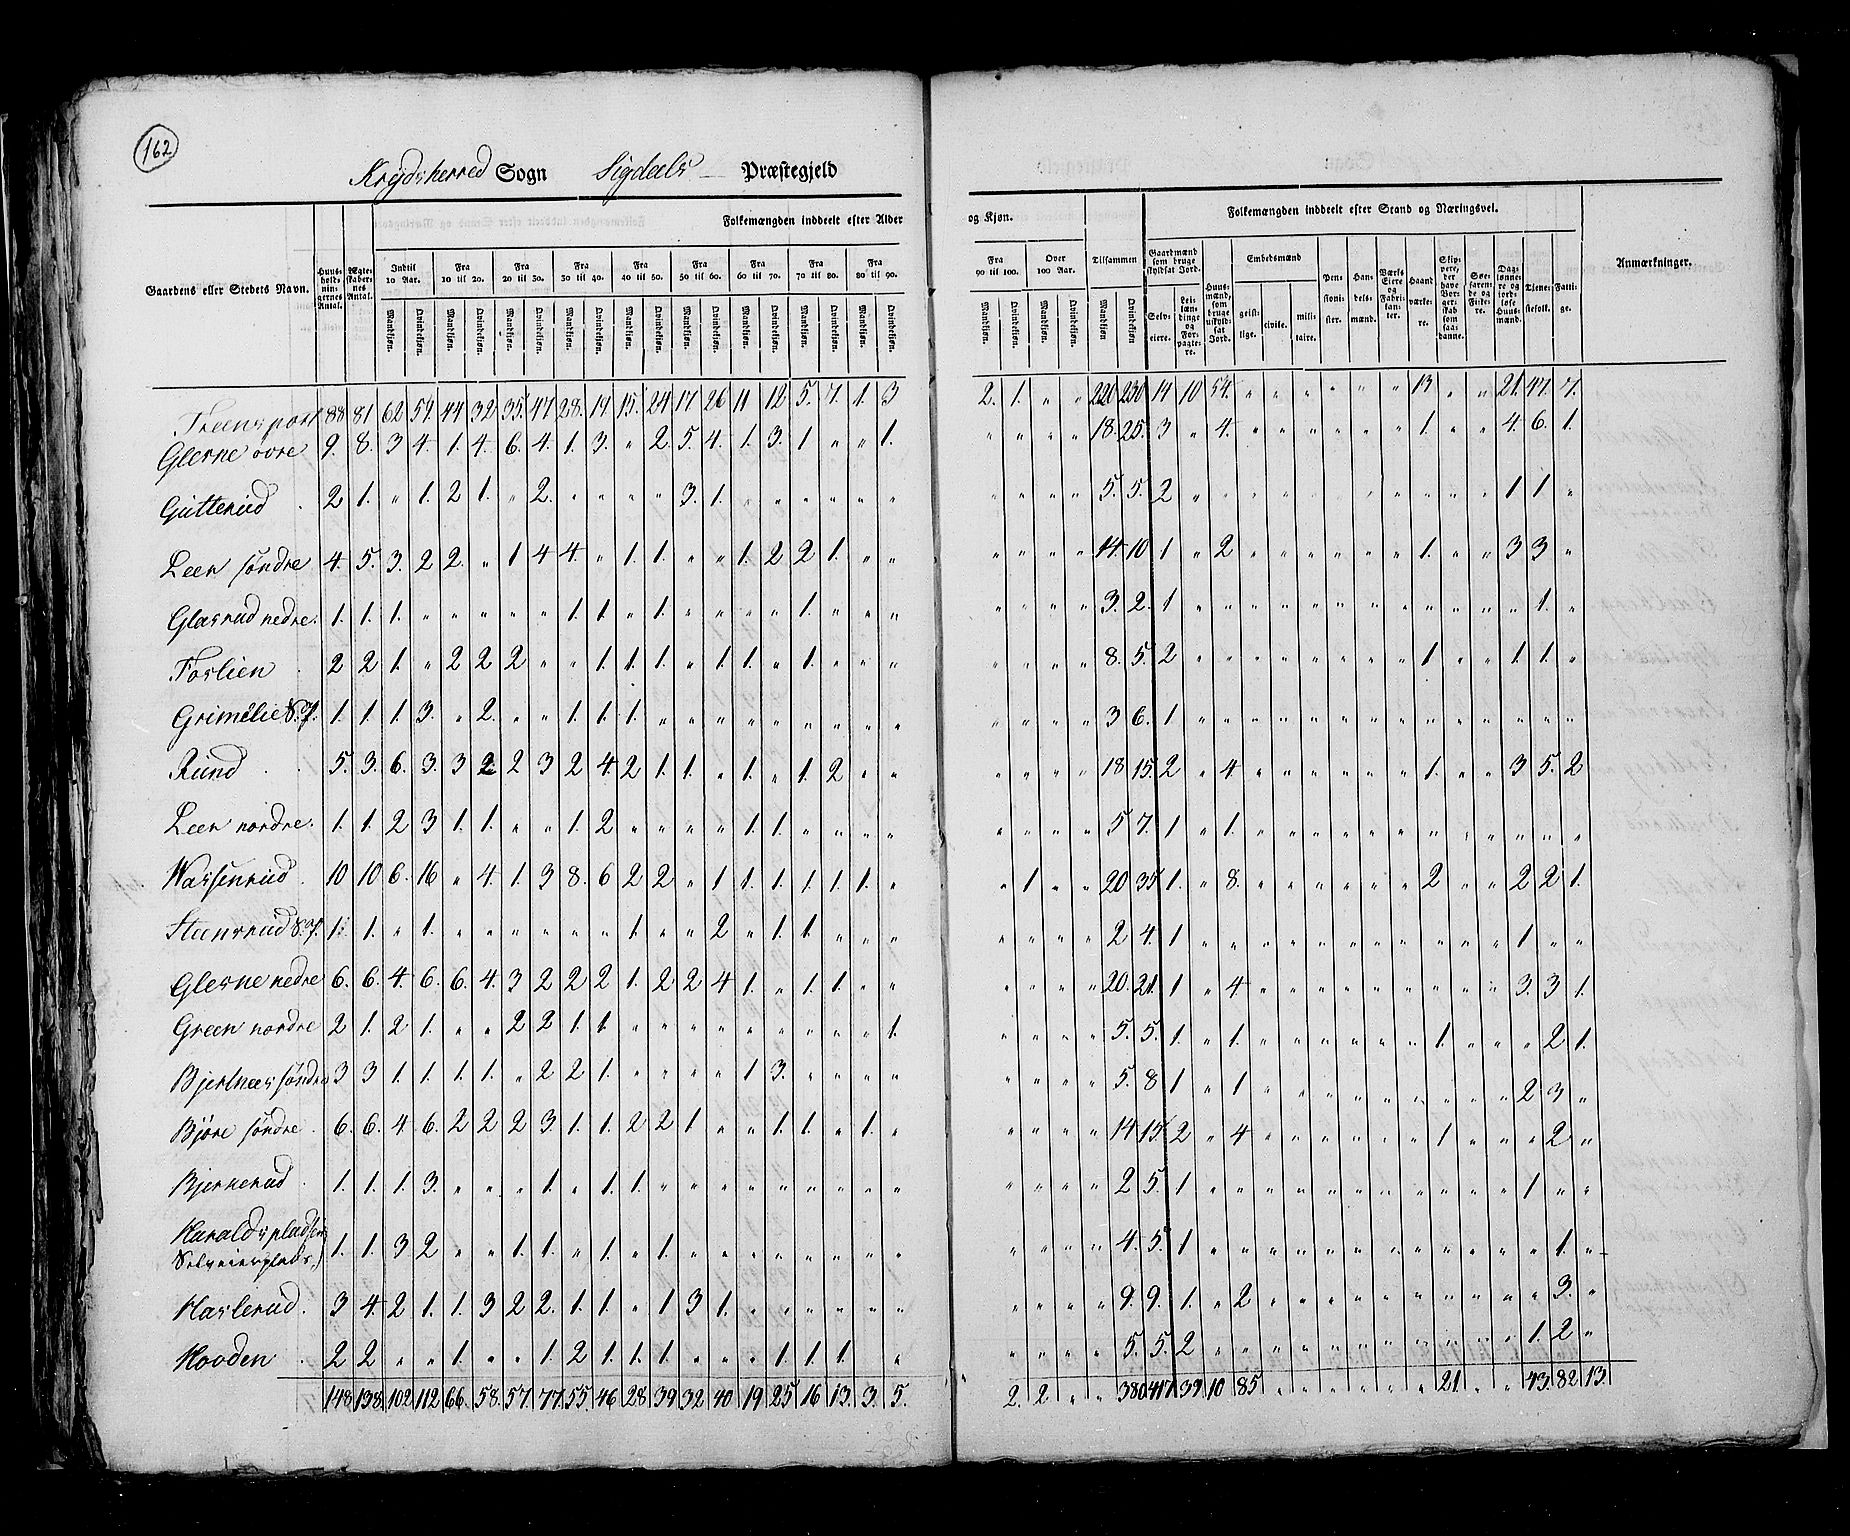 162
Krydsherred Sogn Sigdals Præstegjeld
Folkemængden inddeelt efter Alder og Kjøn. Folkemængden inddeelt efter Stand og Næringsvei.
Gaardens eller Stedets Navn. Huus-holdningernes Antal. Ægteskabernes Antal. Indtil 10 Aar. Fra 10 til 20. Fra 20 til 30. Fra 30 til 40. Fra 40 til 50. Fra 50 til 60. Fra 60 til 70. Fra 70 til 80. Fra 80 til 90. Fra 90 til 100. Over 100 Aar. Tilsammen Gaardmænd som bruge skyldsat Jord. Embedsmænd Anmærkninger.
Mandkiøn. Qvindekiøn. Mandkiøn. Qvindekiøn. Mandkiøn. Qvindekiøn. Mandkiøn. Qvindekiøn. Mandkiøn. Qvindekiøn. Mandkiøn. Qvindekiøn. Mandkiøn. Qvindekiøn. Mandkiøn. Qvindekiøn. Mandkiøn. Qvindekiøn. Mandkiøn. Qvindekiøn. Mandkiøn. Qvindekiøn. Mandkiøn Qvindekiøn Selveiere. Leilændinge og Forpagtere. Huusmænd, som bruge uskyldsat Jord. geistlige. civile. militaire. Pensionister. Handelsmænd. Værks Eiere og Fabrikanter. Haandværkere. Skippere, der have Borgerskab som saadanne. Søefarende og Fiskere. Daglønnere og jordløse Huusmænd. Tjenestefolk. Fattige.
Transport 88 81 62 54 44 32 35. 47 28. 19 15. 24 17 26 11 12 5. 7. 1. 3 2. 1. " " 220 230 14 10 54. " " " " " " 13 " " 21. 47. 7.
Glesne øvre 9. 8. 3 4. 1. 4. 6. 4. 1. 3. " 2. 5. 4. 1. 3. 1 " " 1. " " " " 18. 25. 3 " 4. " " " " " " 1. " " 4. 6. 1.
Gutterud 2 1. " 1. 2 1. " 2. " " " " 3. 1. " " " " " " " " " " 5. 5. 2 " " " " " " " " " " " 1 1 "
Leen søndre 4. 5. 3. 2 2. " 1 4 4. " 1. 1. " " 1. 2 2 1. " " " " " " 14. 10 1 " 2 " " " " " " 1. " " 3 3 "
Glasrud nedre. 1. 1. 1. " " " " " 1. 1. " 1. " " " " 1. " " " " " " " 3. 2. 1 " " " " " " " " " " " " 1. "
Foslien 2 2 1. " 2 2 2 " " 1. 1. 1. " 1. 1. " 1. " " " " " " " 8. 5. 2 " " " " " " " " 1 " " 1. 1. "
Grimelie S.P. 1. 1. 1. 3. " 2. " " 1. 1. 1. " " " " " " " " " " " " " 3 6. 1 " " " " " " " " " " " " " "
Ruud 5. 3. 6. 3. 3 2 2 3 2 4. 2 1. 1. " 1. " 1. 2 " " " " " " 18 15. 2 " 4 " " " " " " 1. " " 3 5. 2
Leen nordre. 1. 1. 2 3 1. 1. " " 1. 2 " " " " 1. 1. " " " " " " " " 5 7. 1 " 1. " " " " " " " " " " " "
Wassenrud 10 10 6. 16 " 4. 1. 3 8. 6 2 2 " 1 1. 1. 1. 1. 1. " " 1 " " 20 35 1. " 8. " " " " " " 2 " " 2 2 1.
Steensrud S.P. 1. 1. " 1. " " " " " " 1. " " 2 " 1. 1. " " " " " " " 2 4. 1 " " " " " " " " " " " 1 " "
Glesne nedre 6. 6. 4. 6. 6. 4. 3 2 2 2 1. 2 2 4 1. " 1. 1. " " " " " " 20. 21. 1 " 4 " " " " " " " " " 3. 3 1.
Green nordre 2 1. 2 1. " " 2 2 1. 1. " " " " " " " " " 1. " " " " 5. 5. 1 " 1. " " " " " " 1. " " " 2 1.
Bjertnæs søndre 3 3 1. 1. 1. 1. " 2 2 1. " " " " 1 3. " " " " " " " " 5. 8 1 " 1 " " " " " " " " " 2 3 "
Bjøre søndre. 6. 6. 4 6. 2 2 2 3 1. 1. 2 2 1 " " 1. 1. " 1. " " " " " 14 15 2 " 4 " " " " " " 1 " " " 2 "
Bjernerud 1. 1. 1. 3. " " " 1. " 1. 1. " " " " " " " " " " " " " 2 5. 1 " " " " " " " " " " " 1 " "
Haraldspladsen
Selveierplads,) 1. 1. 3 2 " " 1. 1. " 1. " 1. " " " " " " " " " " " " 4. 5. 1 " " " " " " " " " " " " 1. "
Haslerud. 3 4 2 1. 1. 3 2 2. 1. 1. " 1 3 1. " " " " " " " " " " 9. 9. 1. " 2 " " " " " " " " " " 3. "
Hovden 2 2 " " 1. " " 1. 2 1. 1. 1. " " " 1. 1. 1. " " " " " 5. 5. 2 " " " " " " " " " " " 1. 2 "
148 138 102 112 66. 58. 57. 77. 55. 46 28 39 32 40 19 25 16 13. 3. 5. 2. 2. " " 380 417 39 10 85 " " " " " " 21. " " 43. 82 13.